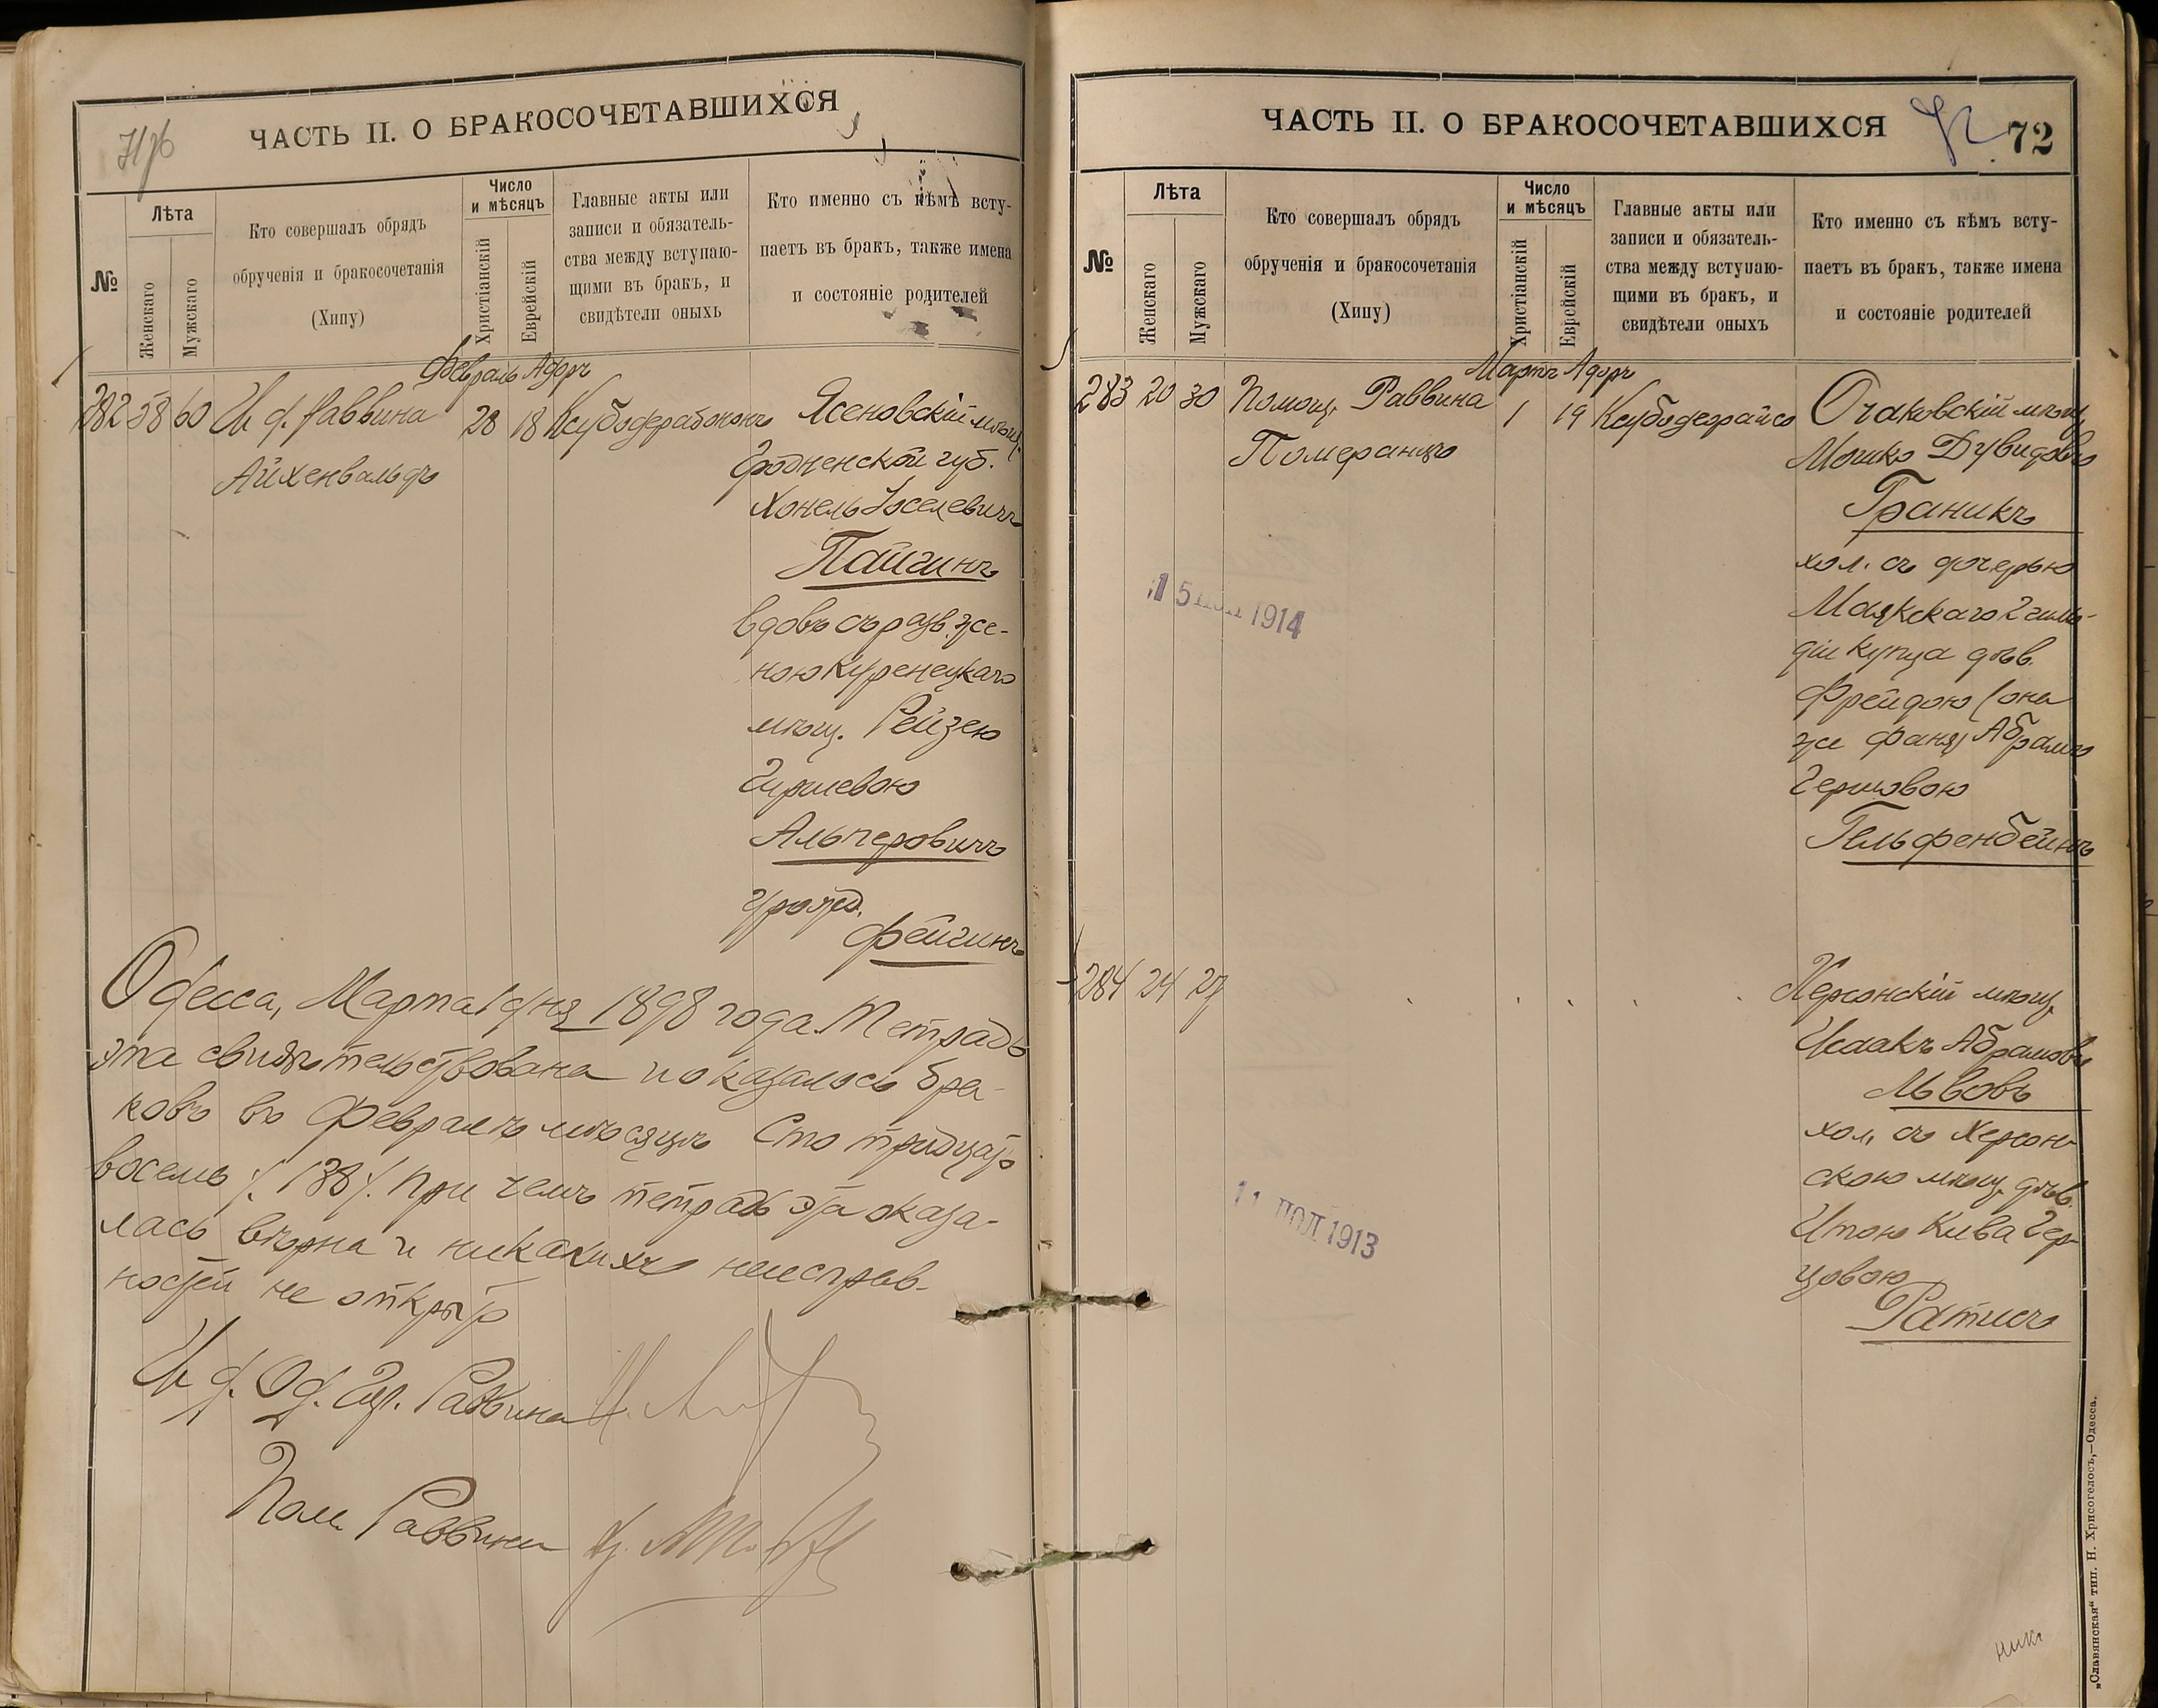 ЧАСТЬ II. О БРАКОСОЧЕТАВШИХСЯ
№
Лѣта
Женскаго
Мужскаго
Кто совершалъ обрядъ
обрученія и бракосочетанія
(Хипу)
Число
и мѣсяцъ
Христіанскій
Еврейскій
Главные акты или
записи и обязатель-
ства между вступаю-
щими въ бракъ, и
свидѣтели оныхъ
Кто именно съ кѣмъ всту-
паетъ въ бракъ, также имена
и состояніе родителей
Февраль Адоръ
282 58 60 И. д. Раввина 28 18
Айхенвальдъ
Ясеновскій мѣщ.
Гродненской губ.
Хонель Іоселевичъ
Пайгинъ
вдовъ съ разв. же-
ною Куренецкаго
мѣщ. Рейзею
Гиршевою
Альперовичъ
урожд.
Фейгинъ
Одесса, Марта 1 дня 1898 года. Тетрадь
эта свидѣтельствована и оказалось бра-
ковъ въ Февралѣ мѣсяцѣ Сто тридцать
восемь /.138/. При чемъ тетрадь эта оказа-
лась вѣрна и никакихъ неисправ-
ностей не открыто
И. д. Од. Гор. Раввина
Пом. Раввина
ЧАСТЬ II. О БРАКОСОЧЕТАВШИХСЯ
72
№
Лѣта
Женскаго
Мужскаго
Кто совершалъ обрядъ
обрученія и бракосочетанія
(Хипу)
Число
и мѣсяцъ
Христіанскій
Еврейскій
Главные акты или
записи и обязатель-
ства между вступаю-
щими въ бракъ, и
свидѣтели оныхъ
Кто именно съ кѣмъ всту-
паетъ въ бракъ, также имена
и состояніе родителей
Мартъ Адоръ
283 20 30 Помощ. Раввина 1 19
Померанцъ
Очаковскій мѣщ.
Мошко Дувидовъ
Граникъ
хол. съ дочерью
Маякскаго 2 гиль-
діи купца дѣв.
Фрейдою (она
же Фаня) Абрамъ
Гершовою
Гельфенбейнъ
1914
284 24 27
Херсонскій мѣщ.
Исаакъ Абрамовъ
Львовъ
хол. съ Херсон-
скою мѣщ. дѣв.
Итою Кива Гер-
цовою
Ратисъ
11 ІЮЛ 1913
„Славянская“ тип. Н. Хрисогелосъ,—Одесса.